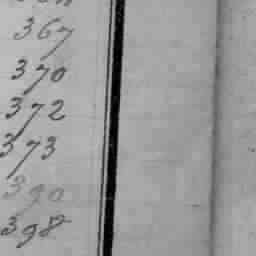 367
370
372
373
390
398